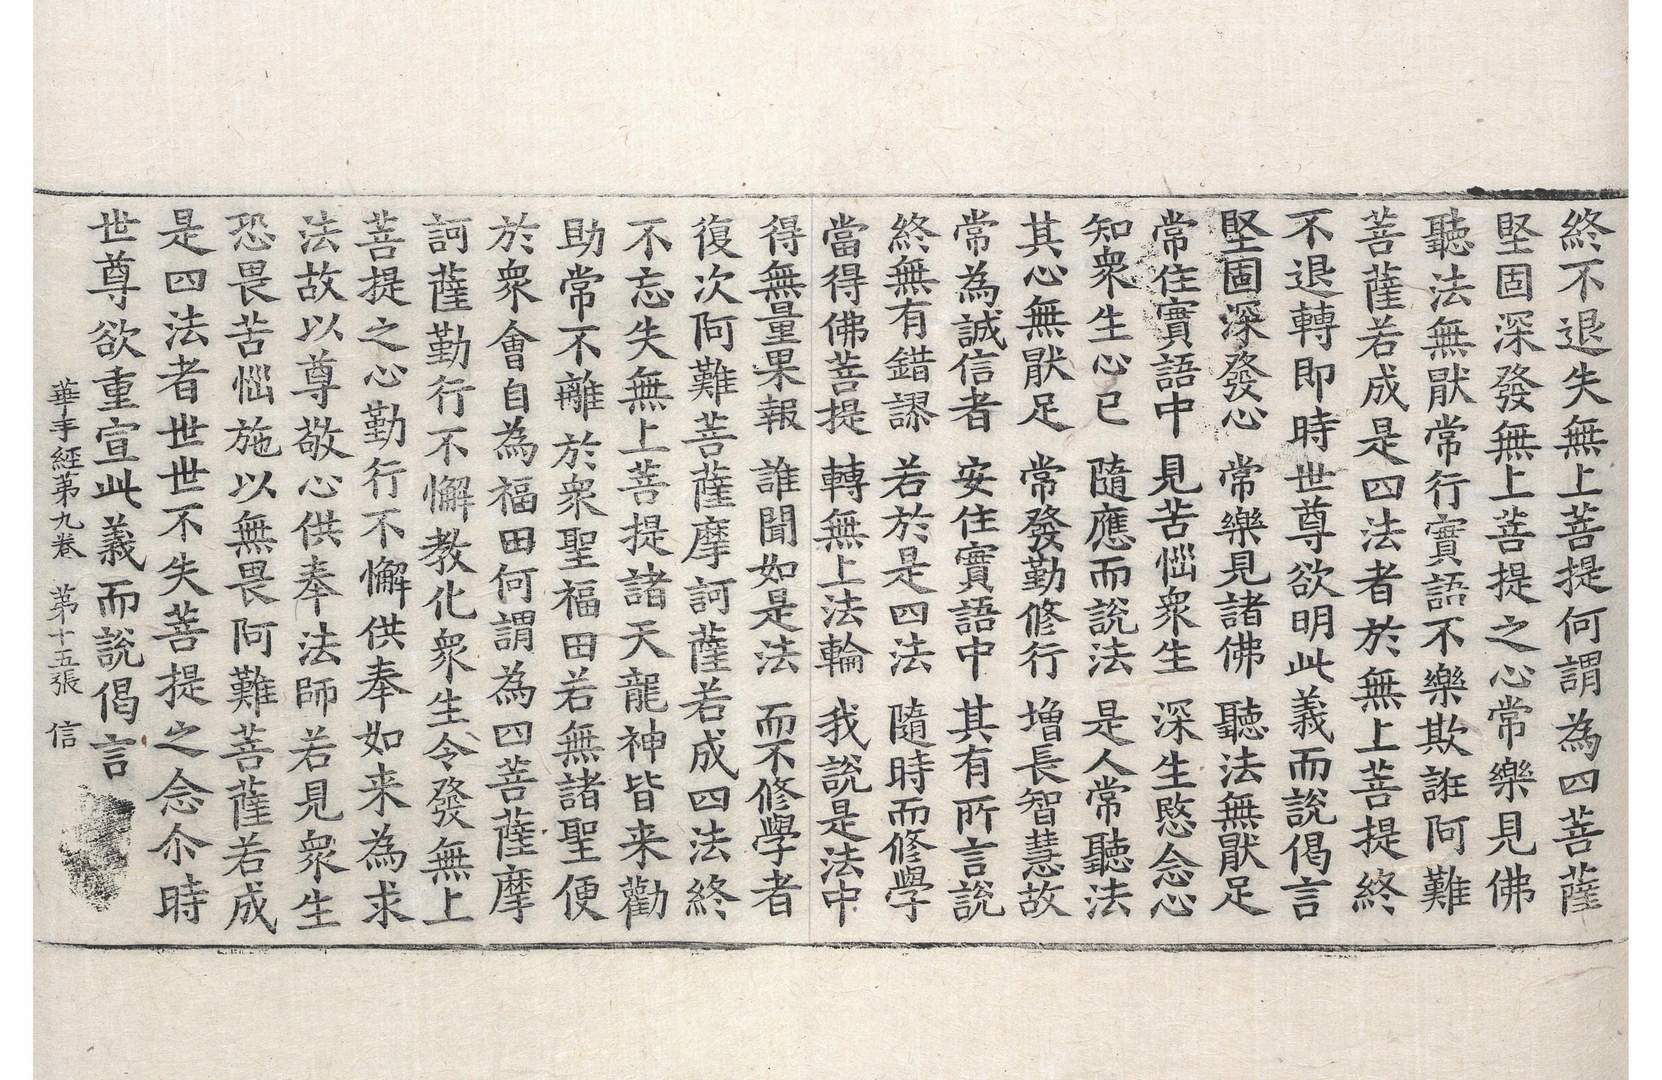 終不退失無上菩提何謂為四菩薩
堅固深發無上菩提之心常樂見佛
聽法無猒常行實語不樂欺誑阿難
菩薩若成是四法者於無上菩提終
不退轉即時世尊欲明此義而說偈言
堅固深發心　常樂見諸佛　聽法無猒足
常住實語中　見苦惱衆生　深生愍念心
知衆生心已　隨應而說法　是人常聽法
其心無猒足　常發勤修行　增長智慧故
常為誠信者　安住實語中　其有所言說
終無有錯謬　若於是四法　隨時而修學
當得佛菩提　轉無上法輪　我說是法中
得無量果報　誰聞如是法　而不修學者
復次阿難菩薩摩訶薩若成四法終
不忘失無上菩提諸天龍神皆来勸
助常不離於衆聖福田若無諸聖便
於衆會自為福田何謂為四菩薩摩
訶薩勤行不懈教化衆生令發無上
菩提之心勤行不懈供奉如来為求
法故以尊敬心供奉法師若見衆生
恐畏苦惱施以無畏阿難菩薩若成
是四法者世世不失菩提之念尒時
世尊欲重宣此義而說偈言
華手經第九卷　第十五張　信